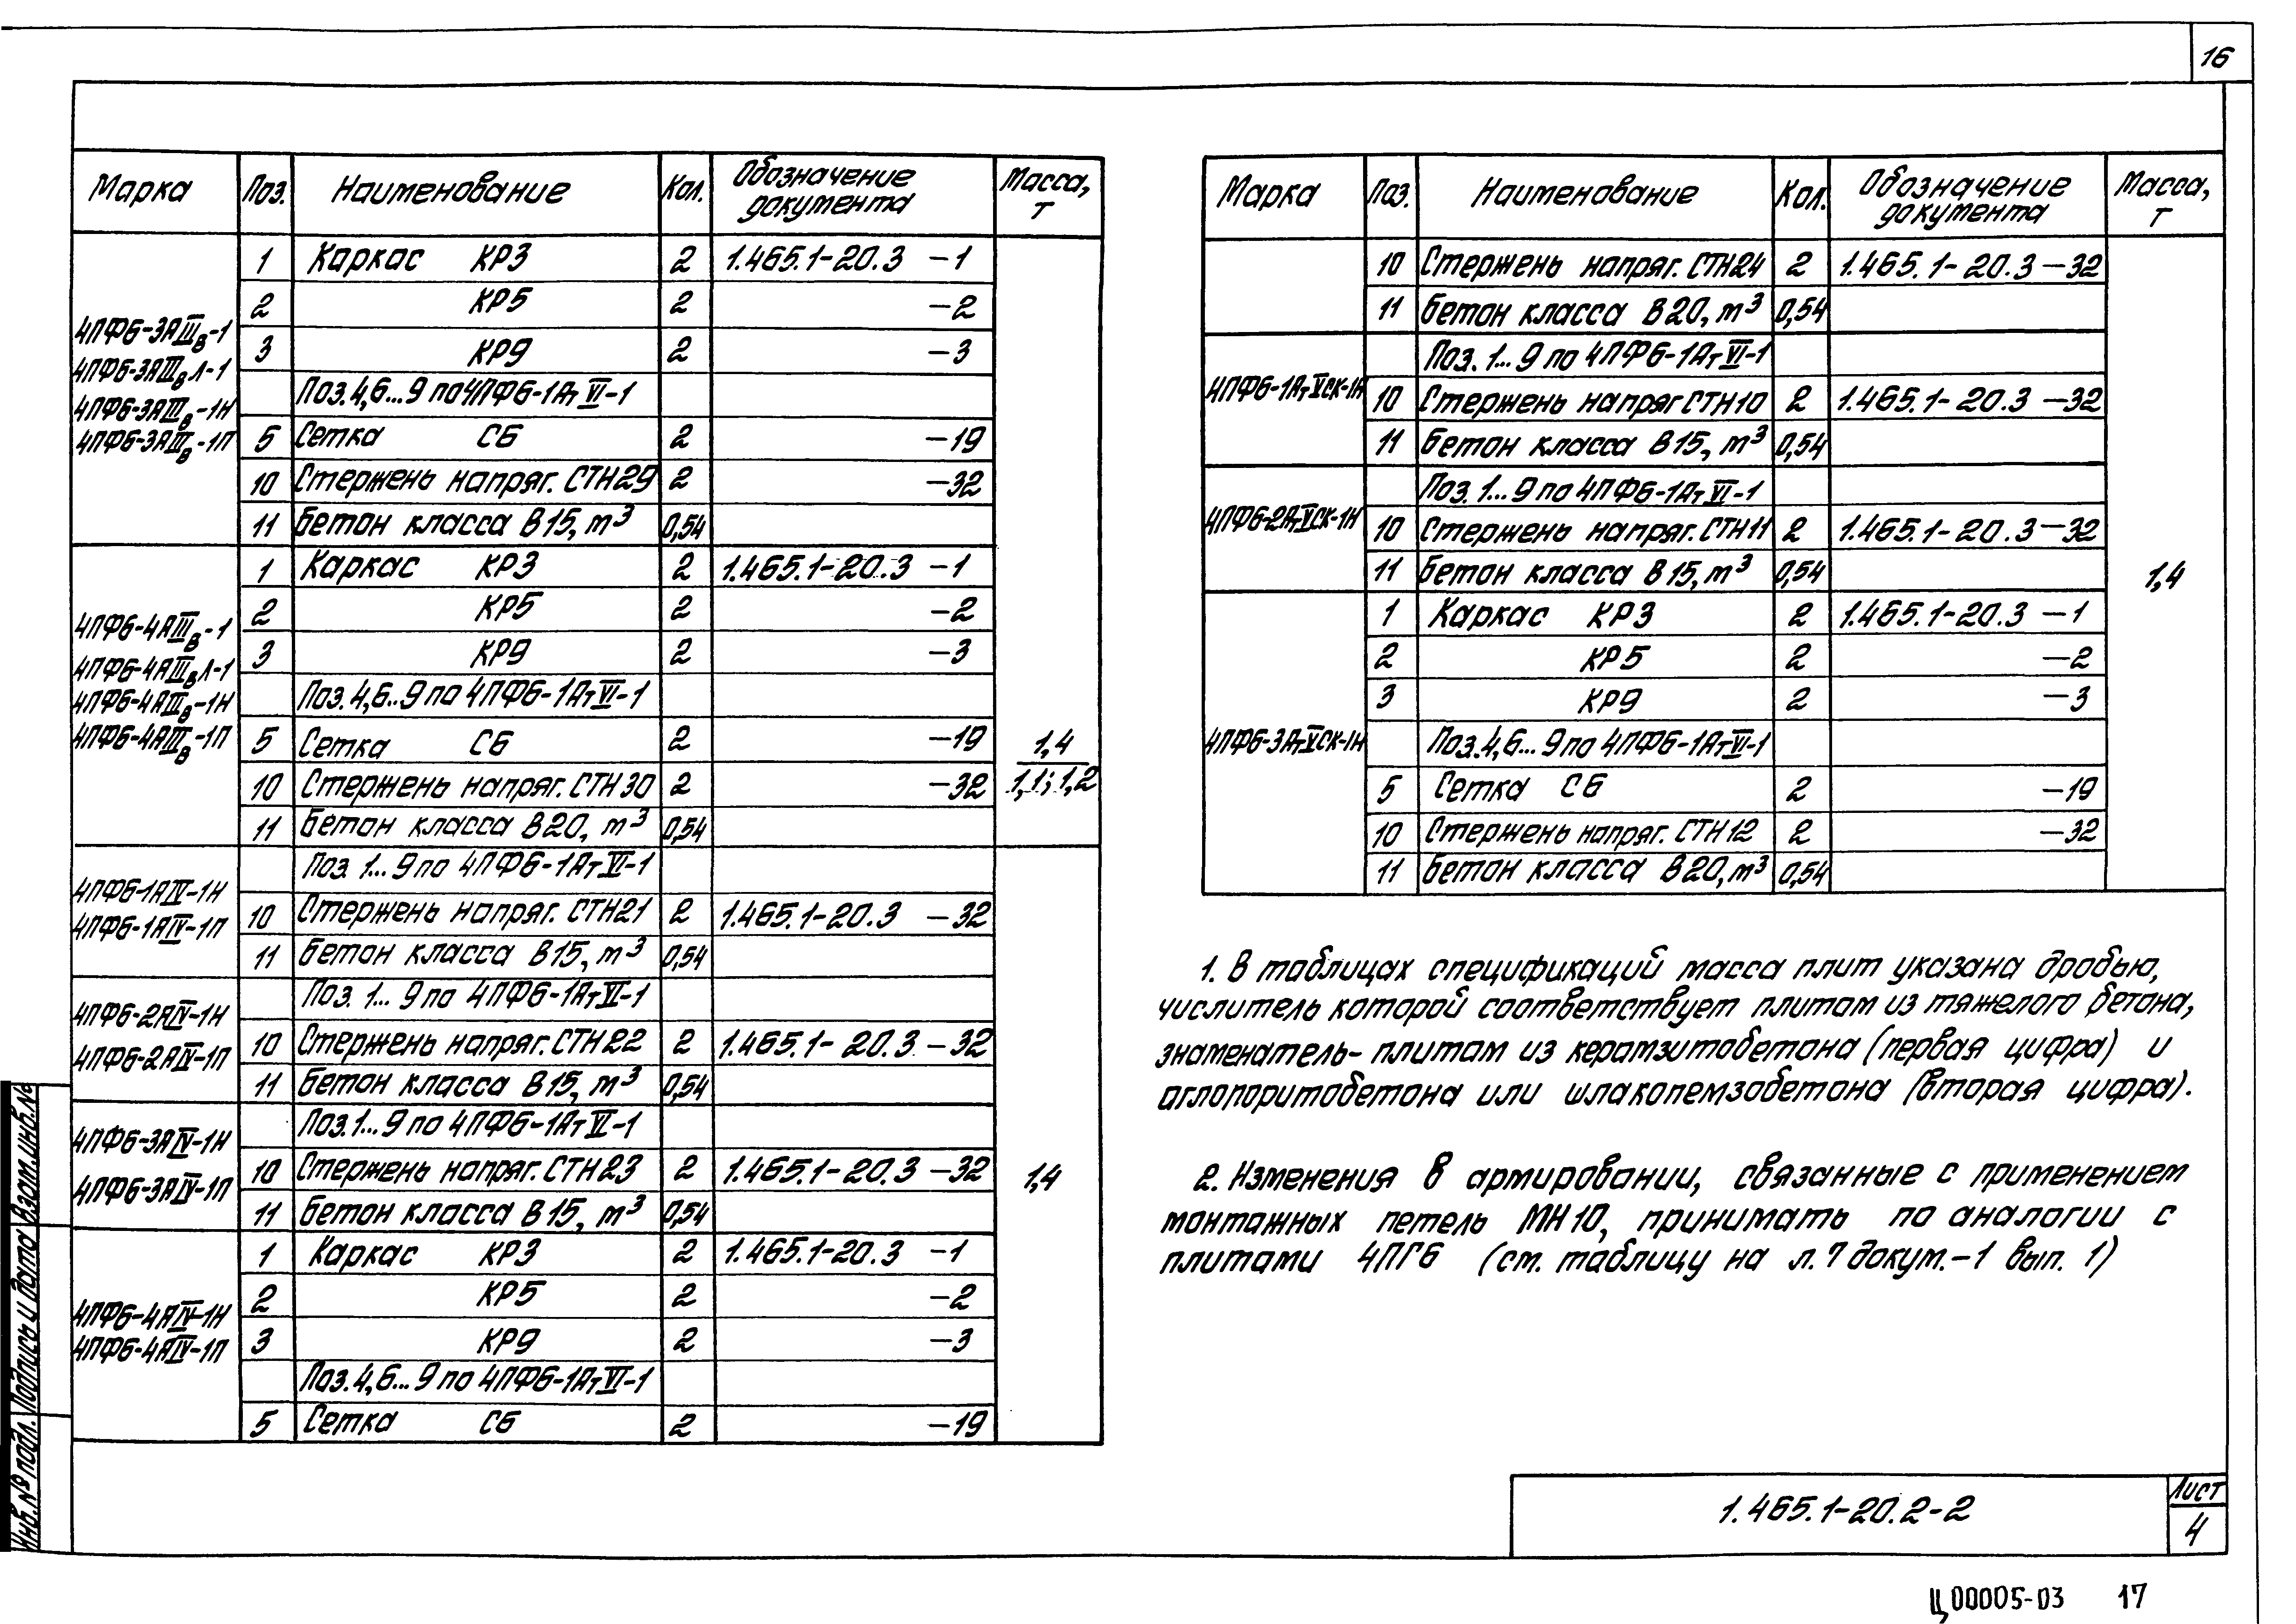 16
Марка Поз. Наименование Кол. Обозначение документа Масса, т
4ПФ6-3АIIIв-1
4ПФ6-3АIIIвЛ-1
4ПФ6-3АIIIв-1Н
4ПФ6-3АIIIв-1П
1 Каркас КР3 2 1.465.1-20.3 -1
2 КР5 2 -2
3 КР9 2 -3
Поз.4,6...9 по 4ПФ6-1АтVI-1
5 Сетка С6 2 -19
10 Стержень напряг. СТН29 2 -32
11 Бетон класса В15, м³ 0,54
4ПФ6-4АIIIв-1
4ПФ6-4АIIIвЛ-1
4ПФ6-4АIIIв-1Н
4ПФ6-4АIIIв-1П
1 Каркас КР3 2 1.465.1-20.3 -1
2 КР5 2 -2
3 КР9 2 -3
Поз.4,6...9 по 4ПФ6-1АтVI-1
5 Сетка С6 2 -19
10 Стержень напряг. СТН30 2 -32
11 Бетон класса В20, м³ 0,54
1,4
1,1; 1,2
4ПФ6-1АIV-1Н
4ПФ6-1АIV-1П
Поз. 1...9 по 4ПФ6-1АтVI-1
10 Стержень напряг. СТН21 2 1.465.1-20.3 -32
11 Бетон класса В15, м³ 0,54
4ПФ6-2АIV-1Н
4ПФ6-2АIV-1П
Поз. 1...9 по 4ПФ6-1АтVI-1
10 Стержень напряг. СТН22 2 1.465.1-20.3 -32
11 Бетон класса В15, м³ 0,54
4ПФ6-3АIV-1Н
4ПФ6-3АIV-1П
Поз.1...9 по 4ПФ6-1АтVI-1
10 Стержень напряг. СТН23 2 1.465.1-20.3 -32
11 Бетон класса В15, м³ 0,54
1,4
4ПФ6-4АIV-1Н
4ПФ6-4АIV-1П
1 Каркас КР3 2 1.465.1-20.3 -1
2 КР5 2 -2
3 КР9 2 -3
Поз.4,6...9 по 4ПФ6-1АтVI-1
5 Сетка С6 2 -19
Марка Поз. Наименование Кол. Обозначение документа Масса, т
10 Стержень напряг. СТН24 2 1.465.1-20.3 -32
11 Бетон класса В20, м³ 0,54
4ПФ6-1АтVСК-1Н
Поз. 1...9 по 4ПФ6-1АтVI-1
10 Стержень напряг СТН10 2 1.465.1-20.3 -32
11 Бетон класса В15, м³ 0,54
4ПФ6-2АтVСК-1Н
Поз. 1...9 по 4ПФ6-1АтVI-1
10 Стержень напряг. СТН11 2 1.465.1-20.3 -32
11 Бетон класса В15, м³ 0,54
1,4
4ПФ6-3АтVСК-1Н
1 Каркас КР3 2 1.465.1-20.3 -1
2 КР5 2 -2
3 КР9 2 -3
Поз.4,6...9 по 4ПФ6-1АтVI-1
5 Сетка С6 2 -19
10 Стержень напряг. СТН12 2 -32
11 Бетон класса В20, м³ 0,54
1. В таблицах спецификаций масса плит указана дробью,
числитель которой соответствует плитам из тяжелого бетона,
знаменатель- плитам из керамзитобетона (первая цифра) и
аглопоритобетона или шлакопемзобетона (вторая цифра).
2. Изменения в армировании, связанные с применением
монтажных петель МН10, принимать по аналогии с
плитами 4ПГ6 (см. таблицу на л.7 докум.-1 вып. 1)
Инв.№ подл. Подпись и дата Взам.инв.№
1.465.1-20.2-2
Лист
4
Ц00005-03 17